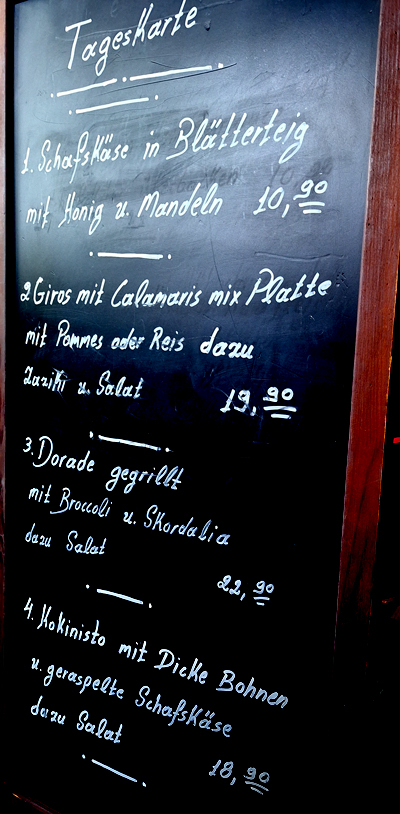 Tageskarte
1. Schafskäse in Blätterteig
mit Honig u. Mandeln 10,90
2 Giros mit Calamaris mix Platte
mit Pommes oder Reis dazu
Zaziki u. Salat 19,90
3. Dorade gegrillt
mit Broccoli u. Skordalia
dazu Salat
22,90
4. Kokinisto mit Dicke Bohnen
u. geraspelte Schafskäse
dazu Salat
18,90